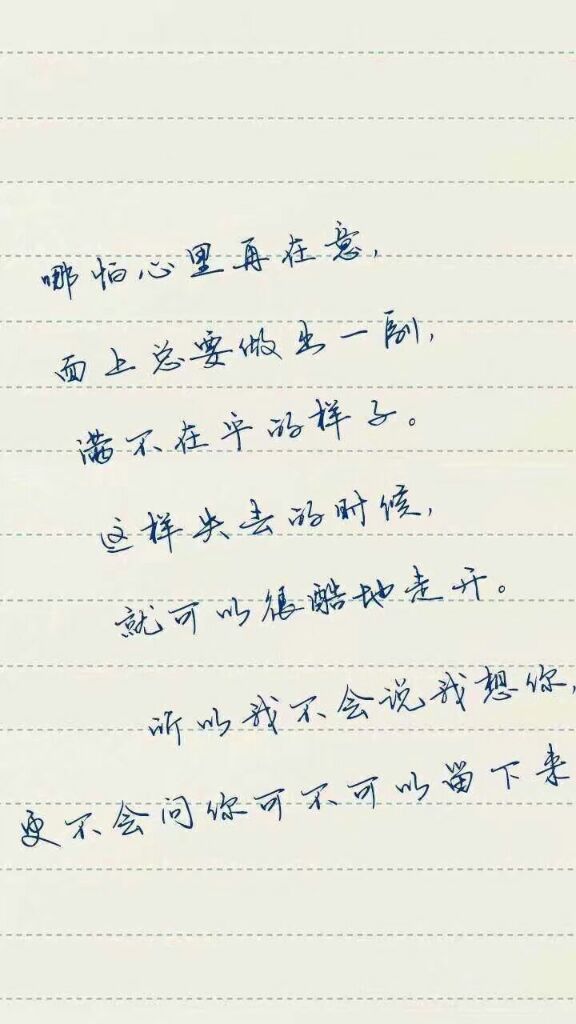 哪怕心里再在意，
面上总要做出一副，
满不在乎的样子。
这样失去的时候，
就可以很酷地走开。
所以我不会说我想你，
更不会问你可不可以留下来